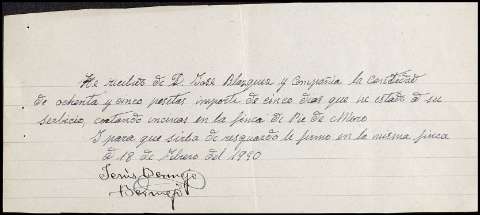 He recibido de D. José Blazquez y Compañia la cantidad
de ochenta y cinco pesetas importe de cinco dias que he estado a su
serbicio, cortando encinas en la finca de Pie de Moro
I para que sirba de resguardo le firmo en la misma finca
a 18 de Febrero del 1940
Jesús Bermejo
Bermejo